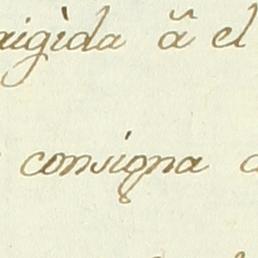 rigìda ã el
consigna